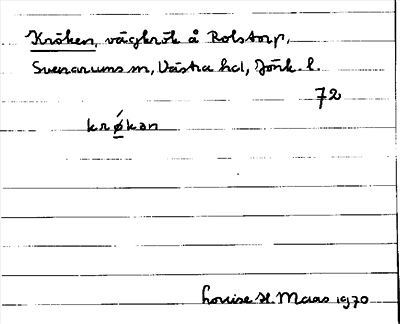 Kröken, vägkrök å Rolstorp,
Svenarums sn, Västra hd, Jönk. l.
72
krǿkan
Louise H. Maas 1970